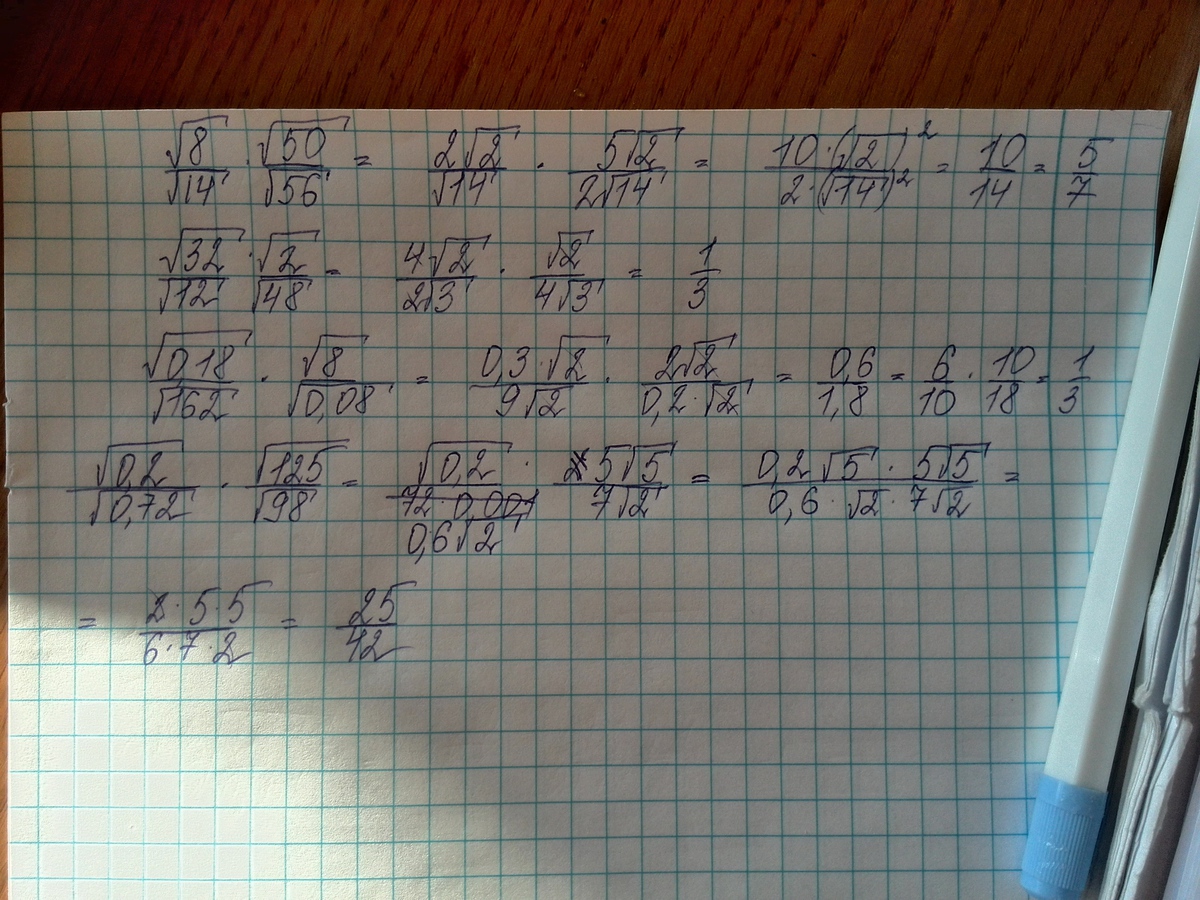 √8/√14 · √50/√56 = 2√2/√14 · 5√2/2√14 = 10·(√2)²/2·(√14)² = 10/14 = 5/7
√32/√12 · √2/√48 = 4√2/2√3 · √2/4√3 = 1/3
√0,18/√162 · √8/√0,08 = 0,3·√2/9√2 · 2√2/0,2·√2 = 0,6/1,8 = 6/10 · 10/18 = 1/3
√0,2/√0,72 · √125/√98 = √0,2/0,6√2 · 5√5/7√2 = 0,2√5 · 5√5/0,6·√2·7√2 =
= 2·5·5/6·7·2 = 25/42